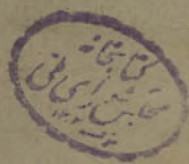 کتابخانه
مجلس شورای ملی